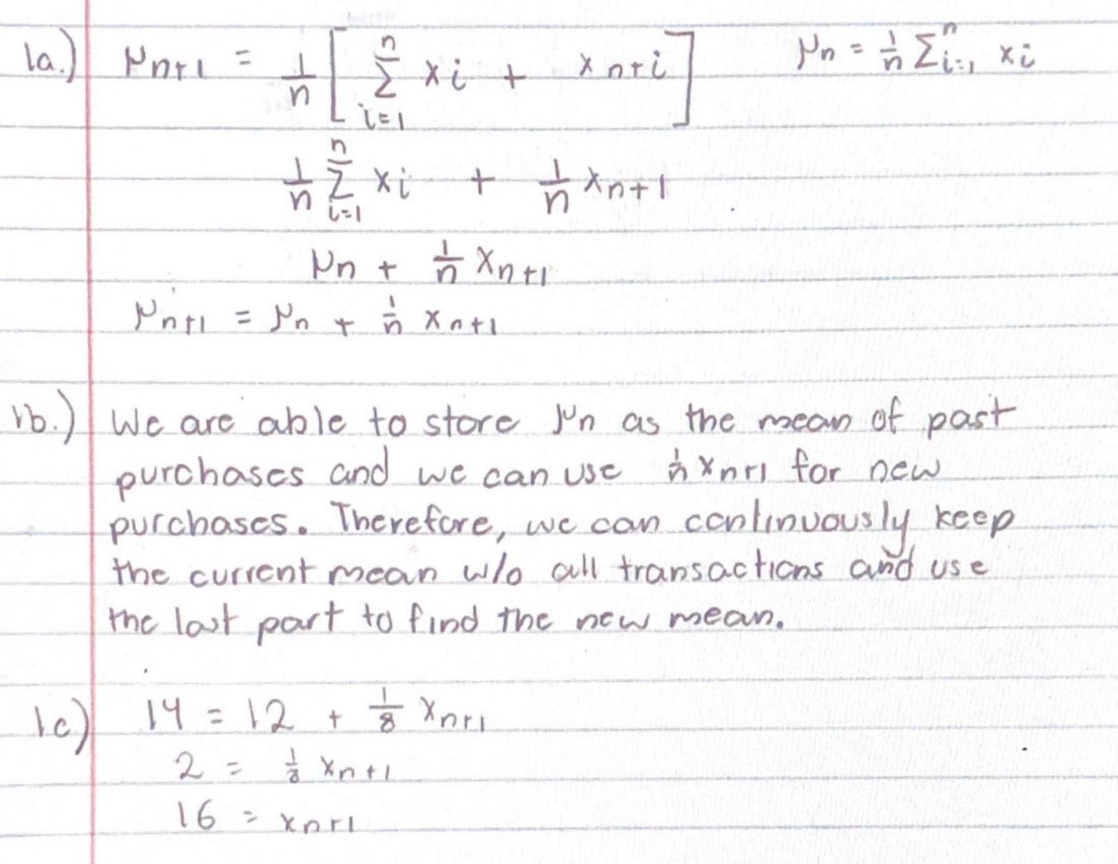 1a.) μn+1 = 1/n [ n∑i=1 xi + xn+i ] μn = 1/n ∑ni=1 xi
1/n n∑i=1 xi + 1/n xn+1
μn + 1/n xn+1
μn+1 = μn + 1/n xn+1
1b.) We are able to store μn as the mean of past
purchases and we can use 1/n xn+1 for new
purchases. Therefore, we can continuously keep
the current mean w/o all transactions and use
the last part to find the new mean.
1c) 14 = 12 + 1/8 xn+1
2 = 1/8 xn+1
16 = xn+1